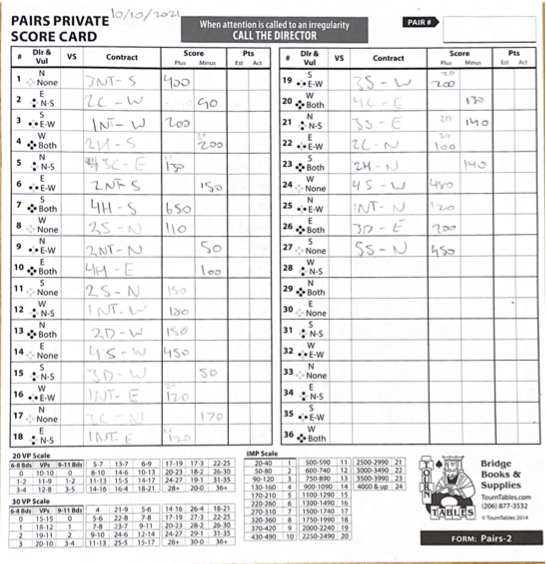 PAIRS PRIVATE
SCORE CARD
10/10/2021
When attention is called to an irregularity
CALL THE DIRECTOR
PAIR #
# Dlr & Vul VS Contract Score Plus Minus Pts Est Act
1 N None 3NT-S 400
2 E N-S 2C-W 90
3 S E-W 1NT-W 200
4 W Both 2H-S 200
5 N N-S 3C-E 130
6 E E-W 2NT-S 150
7 S Both 4H-S 650
8 W None 2S-N 110
9 N E-W 2NT-N 50
10 E Both 4H-E 100
11 S None 2S-N 150
12 W N-S 1NT-W 180
13 N Both 2D-W 150
14 E None 4S-W 450
15 S N-S 3D-W 50
16 W E-W 1NT-E 120
17 N None 3C-N 170
18 E N-S 1NT-E 120
# Dlr & Vul VS Contract Score Plus Minus Pts Est Act
19 S E-W 3S-W 200
20 W Both 4C-E 130
21 N N-S 3S-E 140
22 E E-W 2C-N 100
23 S Both 2H-N 140
24 W None 4S-W 480
25 N E-W 1NT-N 120
26 E Both 3D-E 200
27 S None 5S-N 450
28 W N-S
29 N Both
30 E None
31 S N-S
32 W E-W
33 N None
34 E N-S
35 S E-W
36 W Both
20 VP Scale
6-8 Bds VPs 9-11 Bds 5-7 13-7 6-9 17-19 17-3 22-25
0 10-10 0 8-10 14-6 10-13 20-23 18-2 26-30
1-2 11-9 1-2 11-13 15-5 14-17 24-27 19-1 31-35
3-4 12-8 3-5 14-16 16-4 18-21 28+ 20-0 36+
30 VP Scale
6-8 Bds VPs 9-11 Bds 4 21-9 5-6 14-16 26-4 18-21
0 15-15 0 5-6 22-8 7-8 17-19 27-3 22-25
1 18-12 1 7-8 23-7 9-11 20-23 28-2 26-30
2 19-11 2 9-10 24-6 12-14 24-27 29-1 31-35
3 20-10 3-4 11-13 25-5 15-17 28+ 30-0 36+
IMP Scale
20-40 1 500-590 11 2500-2990 21
50-80 2 600-740 12 3000-3490 22
90-120 3 750-890 13 3500-3990 23
130-160 4 900-1090 14 4000 & up 24
170-210 5 1100-1290 15
220-260 6 1300-1490 16
270-310 7 1500-1740 17
320-360 8 1750-1990 18
370-420 9 2000-2240 19
430-490 10 2250-2490 20
TOURN
TABLES
Bridge
Books &
Supplies
TournTables.com
(206) 877-3532
© TournTables 2014
FORM: Pairs-2